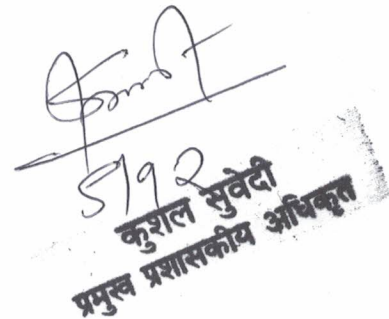 ५/१२
कुशल सुवेदी
प्रमुख प्रशासकीय अधिकृत